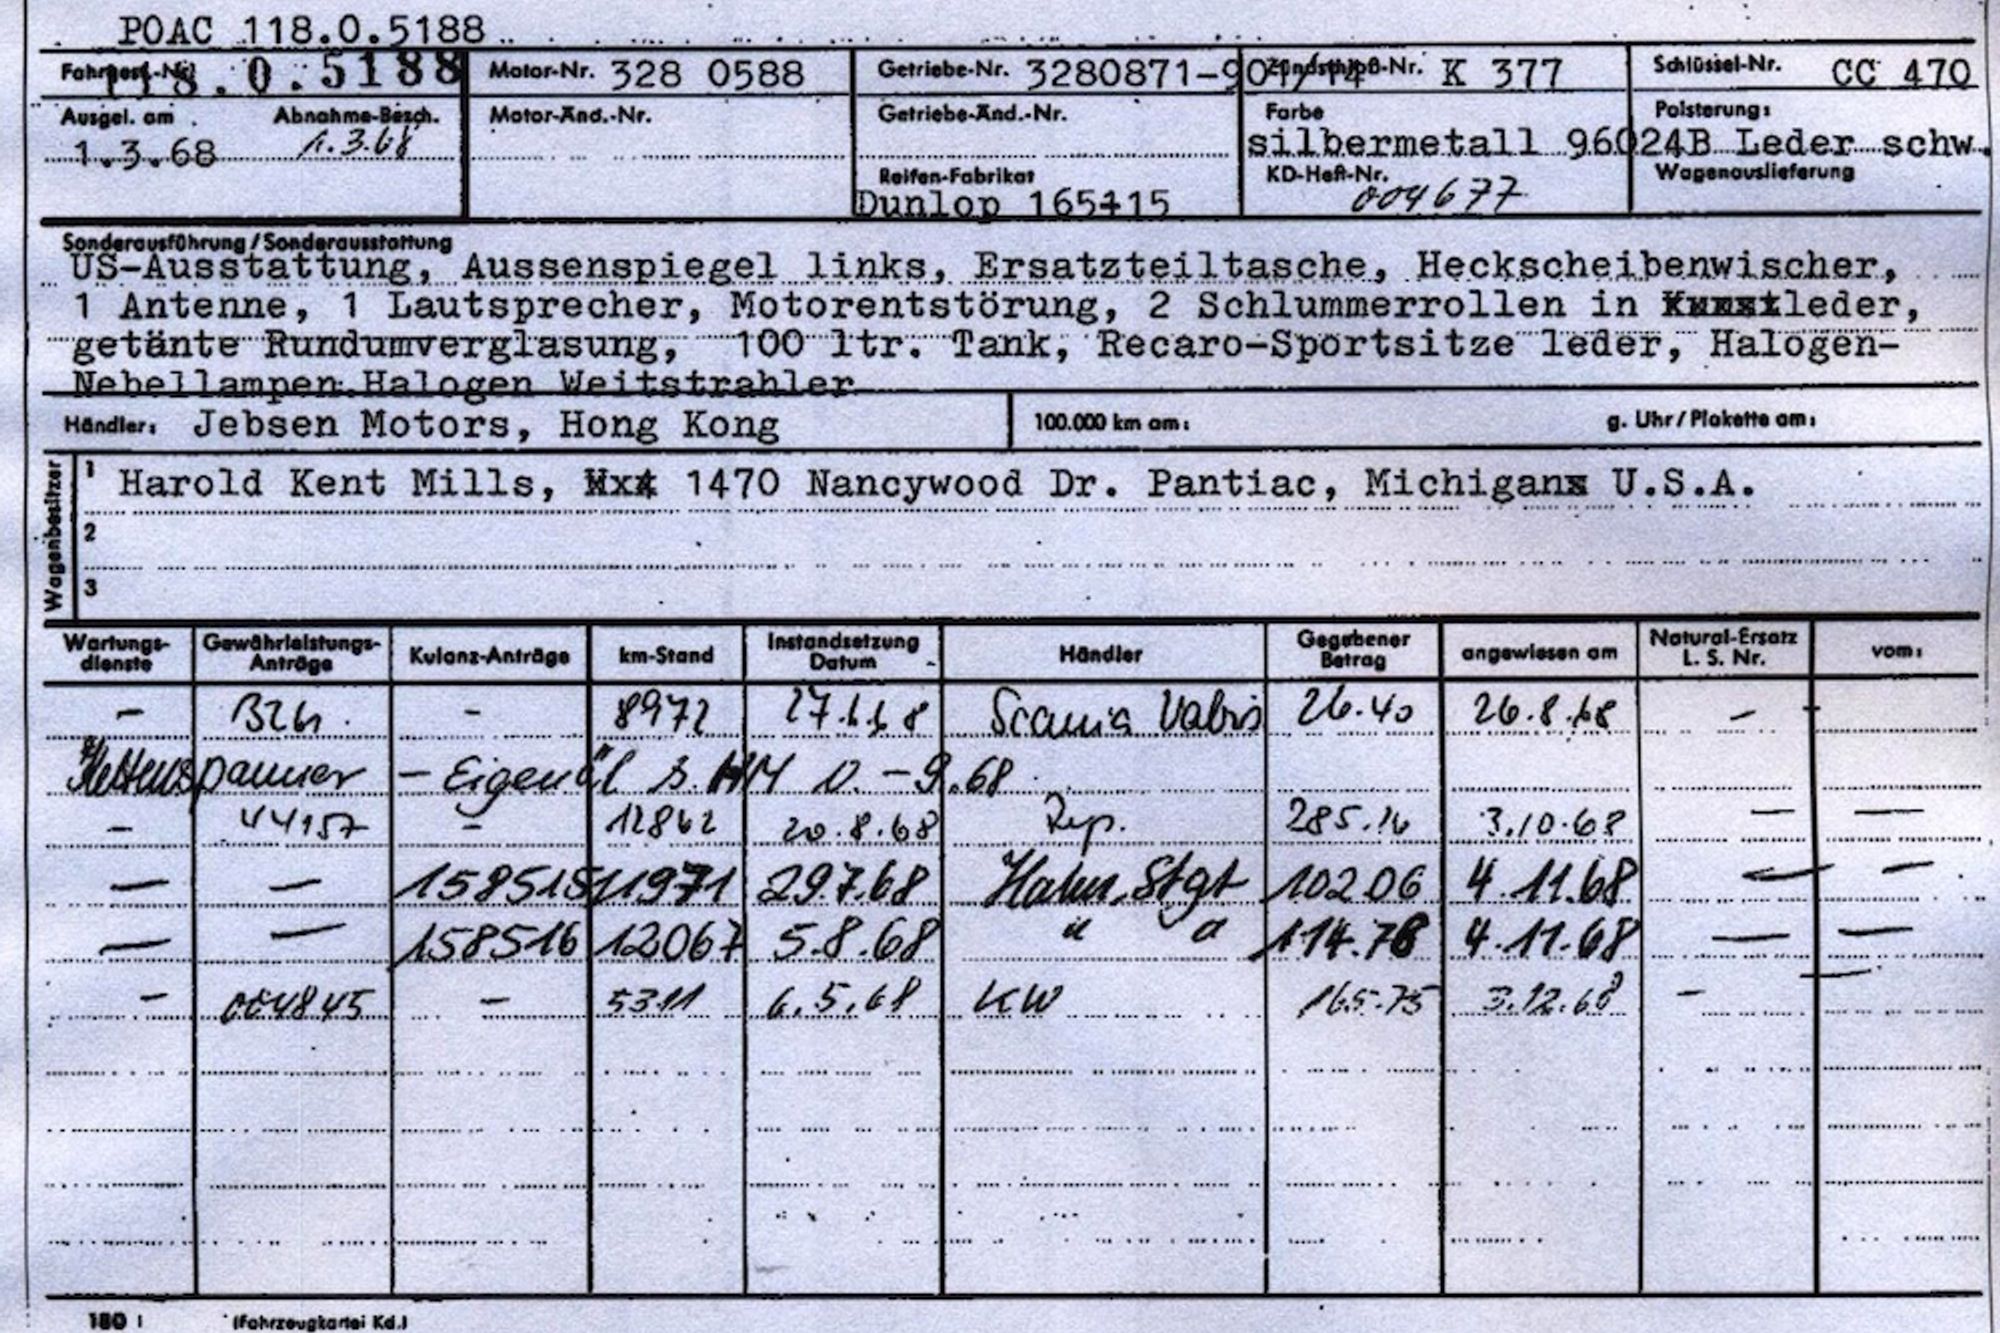 POAC 118.0.5188
Fahrgest.-Nr. 118.0.5188 Motor-Nr. 328 0588 Getriebe-Nr. 3280871-901/14 Zündschloß-Nr. K 377 Schlüssel-Nr. CC 470
Ausgel. am Abnahme-Besch. Motor-Änd.-Nr. Getriebe-Änd.-Nr. Farbe Polsterung:
1.3.68 1.3.68 silbermetall 96024B Leder schw.
Reifen-Fabrikat KD-Heft-Nr. Wagenauslieferung
Dunlop 165-15 004677
Sonderausführung/Sonderausstattung
US-Ausstattung, Aussenspiegel links, Ersatzteiltasche, Heckscheibenwischer,
1 Antenne, 1 Lautsprecher, Motorentstörung, 2 Schlummerrollen in leder,
getänte Rundumverglasung, 100 ltr. Tank, Recaro-Sportsitze leder, Halogen-
Nebellampen.Halogen Weitstrahler
Händler: Jebsen Motors, Hong Kong 100.000 km am: g. Uhr/Plakette am:
Wagenbesitzer
1 Harold Kent Mills, 1470 Nancywood Dr. Pantiac, Michigan U.S.A.
2
3
Wartungs-dienste Gewährleistungs-Anträge Kulanz-Anträge km-Stand Instandsetzung Datum Händler Gegebener Betrag angewiesen am Natural-Ersatz L. S. Nr. vom:
– – 8972 Scania Vabis 26.40 26.8.68 –
Kettenspanner – 9.68
– 44157 – 12862 20.8.68 Rep. 285.16 3.10.68 – –
– – 158515 11971 29.7.68 Hahn, Stgt 102.06 4.11.68 – –
– – 158516 12067 5.8.68 " " 114.78 4.11.68 – –
– 004845 – 5311 6.5.68 KW 165.75 3.12.68 –
180 (Fahrzeugkartei Kd.)